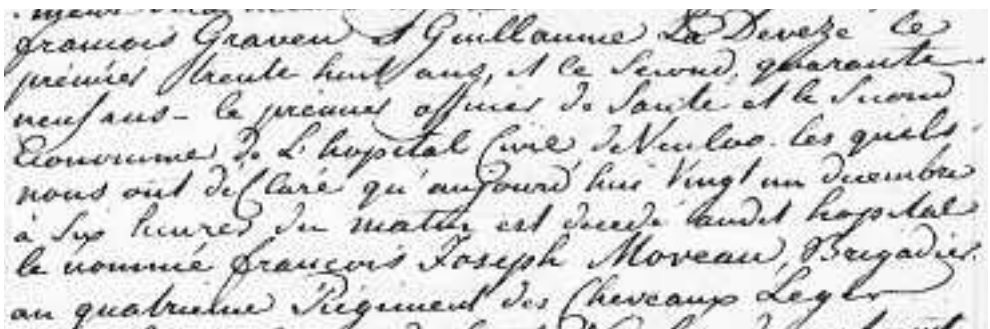 françois Graven et Guillaume La Deveze Ce
prémier trente huit ans, et le Second, quarante
neuf ans - le premier officier de Santé et le Second
Economme de L'hopital Civil de Venloo. les quels
nous ont déClaré qu'aujourd'hui Vingt un decembre
à Six heures du matin est decedé audit hopital
le nommé françois Joseph Moveau, Brigadier
au quatrieme Régiment des Cheveaux Leger